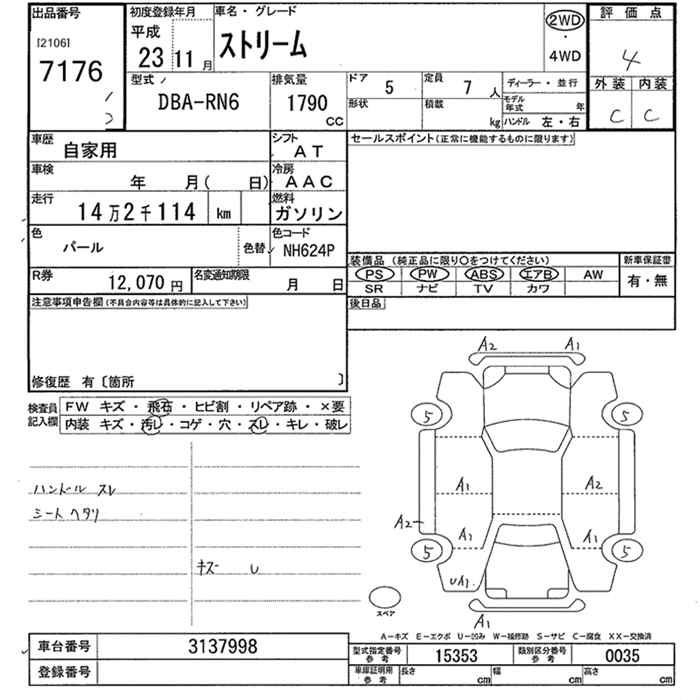 出品番号
[2106]
7176
初度登録年月
平成
23 11月
車名・グレード
ストリーム
2WD
・
4WD
評価点
4
外装 内装
C C
型式
DBA-RN6
排気量
1790
CC
ドア 5
形状
定員 7 人
積載 kg
ディーラー・並行
モデル年式 年
ハンドル 左・右
車歴
自家用
シフト
AT
車検
年 月( 日)
冷房
AAC
走行
14万2千114 km
燃料
ガソリン
色
パール
色替
色コード
NH624P
R券
12,070 円
名変通知期限
月 日
セールスポイント(正常に機能するものに限ります)
装備品 (純正品に限り○をつけてください)
PS PW ABS エアB AW
SR ナビ TV カワ
新車保証書
有・無
後日品
注意事項申告欄(不具合内容等は具体的に記入して下さい)
修復歴 有〔箇所 〕
検査員
記入欄
FW キズ・飛石・ヒビ割・リペア跡・×要
内装 キズ・汚レ・コゲ・穴・スレ・キレ・破レ
ハンドル スレ
シート ヘタリ
キズ U
A2 A1
5 5
A1 A2
A2
A1 A1
5 5
UA1
A1
スペア
A-キズ E-エクボ U-凹み W-補修跡 S-サビ C-腐食 XX-交換済
車台番号
3137998
登録番号
型式指定番号
参考
15353
類別区分番号
参考
0035
車庫証明用
参考
長さ cm
幅 cm
高さ cm